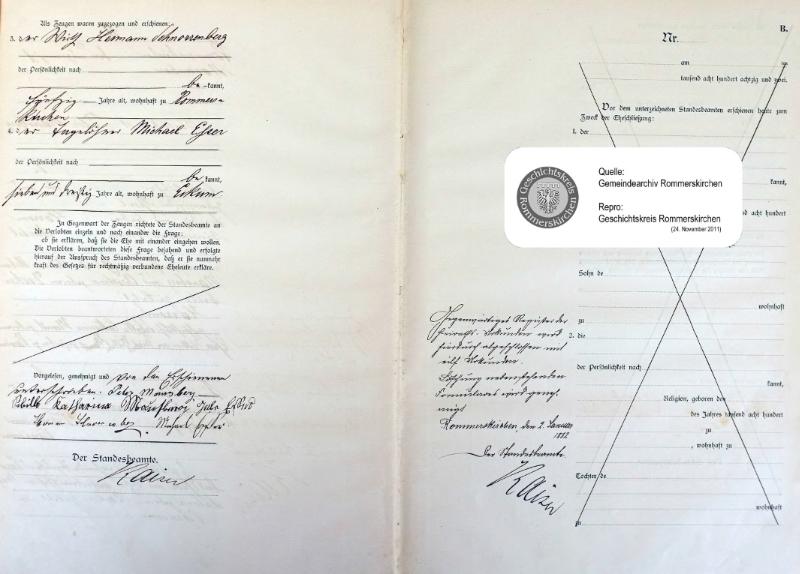 Als Zeugen waren zugezogen und erschienen:
3. der Wirth Hermann Schnorrenberg
der Persönlichkeit nach
be kannt,
fünfzig Jahre alt, wohnhaft zu Rommers-
kirchen
4. der Tagelöhner Michael Esser
der Persönlichkeit nach
be kannt,
sieben und dreißig Jahre alt, wohnhaft zu Eckum
In Gegenwart der Zeugen richtete der Standesbeamte an
die Verlobten einzeln und nach einander die Frage:
ob sie erklären, daß sie die Ehe mit einander eingehen wollen.
Die Verlobten beantworteten diese Frage bejahend und erfolgte
hierauf der Ausspruch des Standesbeamten, daß er sie nunmehr
kraft des Gesetzes für rechtmäßig verbundene Eheleute erkläre.
Vorgelesen, genehmigt und von den Erschienenen
unterschrieben:
Katharina
Michael Esser
Der Standesbeamte.
Kaiser
B.
Nr.
am
tausend acht hundert achtzig und zwei.
Vor dem unterzeichneten Standesbeamten erschienen heute zum
Zweck der Eheschließung:
1. der
kannt,
acht hundert
Sohn de
wohnhaft
zu
2. die
der Persönlichkeit nach
kannt,
Religion, geboren den
des Jahres tausend acht hundert
zu
, wohnhaft zu
Tochter de
wohnhaft
zu
Gegenwärtiges Register der
Heiraths-Urkunden wird
hierdurch abgeschlossen mit
elf Urkunden.
Löschung nebenstehenden
Formulares wird geneh-
migt
Rommerskirchen, den 2. Januar
1882
Der Standesbeamte
Kaiser
Geschichtskreis
Rommerskirchen
Quelle:
Gemeindearchiv Rommerskirchen
Repro:
Geschichtskreis Rommerskirchen
(24. November 2011)